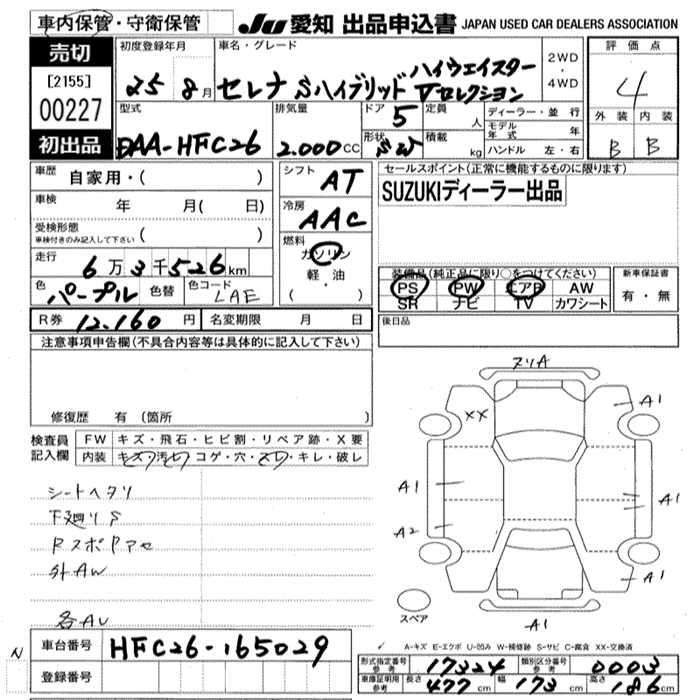 車内保管・守衛保管
JU 愛知 出品申込書 JAPAN USED CAR DEALERS ASSOCIATION
売切
[2155]
00227
初出品
初度登録年月
25 8月
車名・グレード
セレナ Sハイブリッド ハイウェイスター
Vセレクション
2WD
・
4WD
評価点
4
外装 内装
B B
型式
DAA-HFC26
排気量
2.000 CC
ドア 5
形状
定員 人
積載 kg
ディーラー・並行
モデル年式 年
ハンドル 左・右
車歴 自家用・( )
車検 年 月( 日)
受検形態
車検付きのみ記入して下さい ( )
走行 6万3千526km
色 パープル 色替 色コード LAE
シフト AT
冷房 AAC
燃料 ガソリン
軽・油
・
( )
セールスポイント(正常に機能するものに限ります)
SUZUKIディーラー出品
装備品(純正品に限り○をつけてください)
PS PW エアB AW
SR ナビ TV カワシート
新車保証書
有・無
後日品
R券 12.160円 名変期限 月 日
注意事項申告欄(不具合内容等は具体的に記入して下さい)
修復歴 有 (箇所 )
検査員記入欄
FW キズ・飛石・ヒビ割・リペア跡・X要
内装 キズ・汚れ・コゲ・穴・スレ・キレ・破レ
シートヘタリ
下廻りS
RスポPアセ
外AW
各AU
ヌリA
XX
A1
A1
A1
A2
A1
A1
スペア
A-キズ E-エクボ U-凹み W-補修跡 S-サビ C-腐食 XX-交換済
N
車台番号 HFC26-165029
登録番号
形式指定番号 参考 17324 類別区分番号 参考 0003
車庫証明用 参考 長さ 477cm 幅 173cm 高さ 186cm